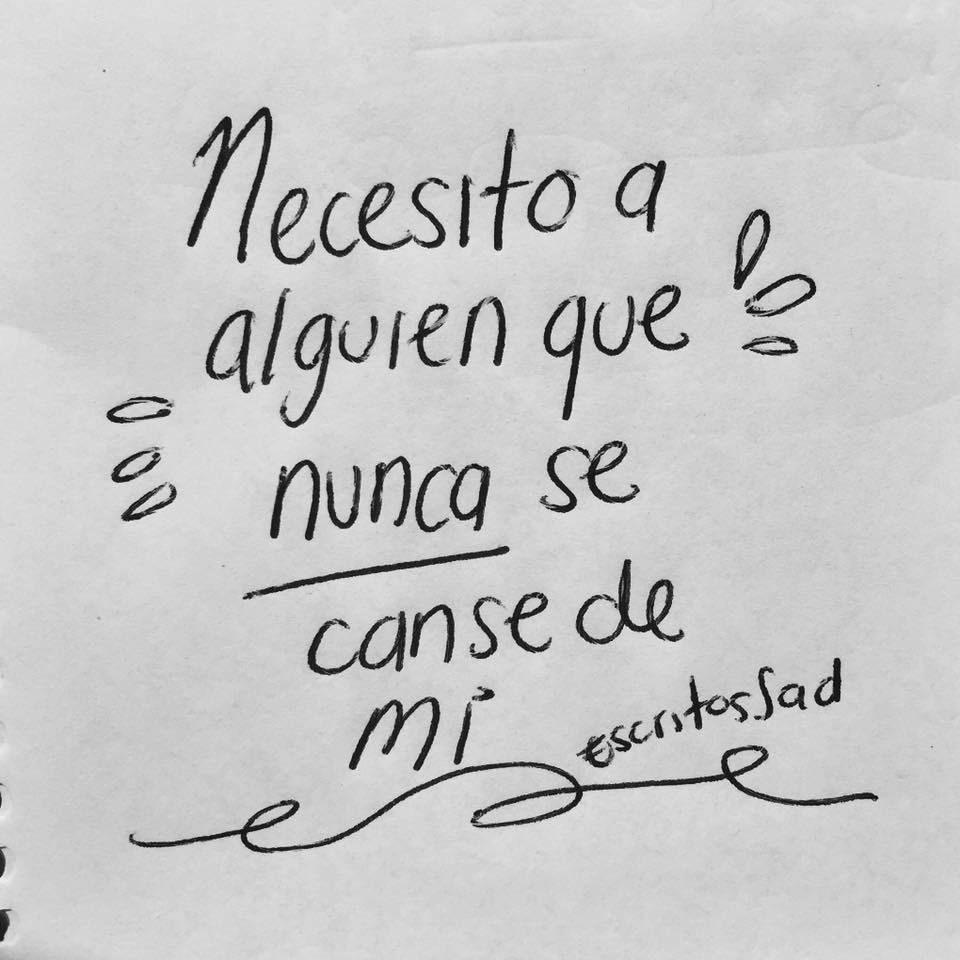 Necesito a
alguien que
nunca se
canse de
mi
escritos.sad